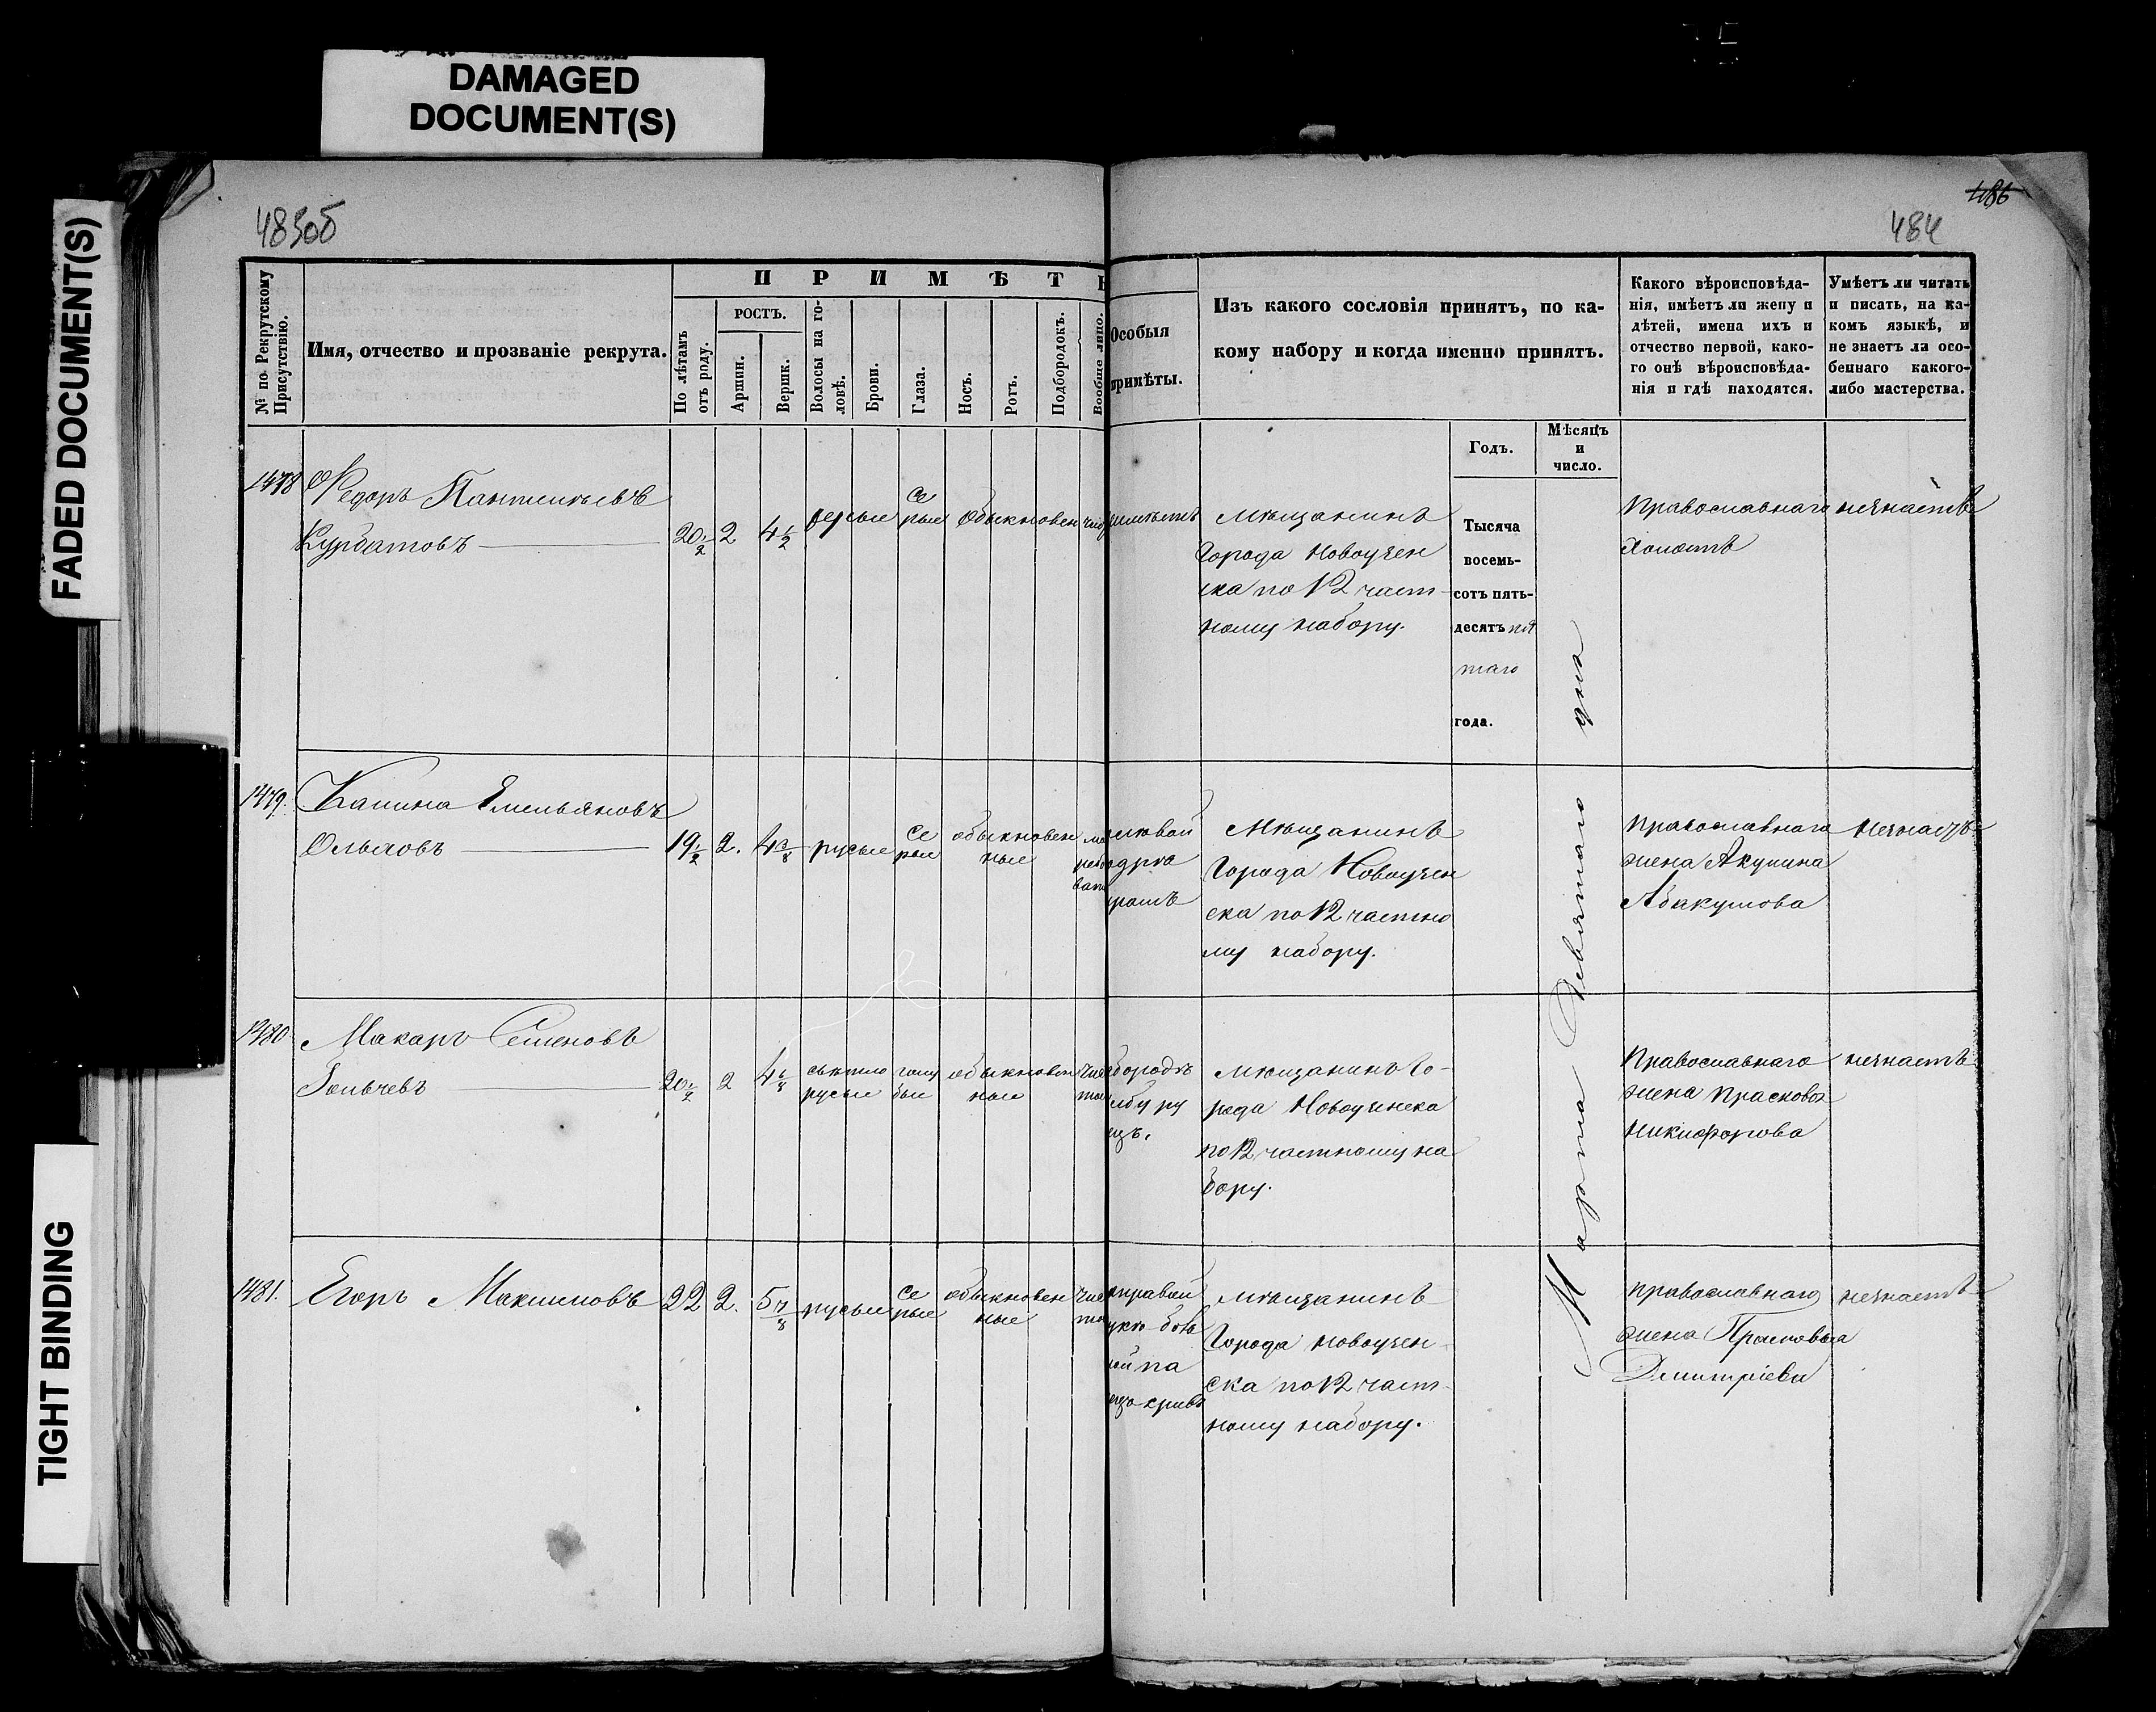 DAMAGED
DOCUMENT(S)
FADED DOCUMENT(S)
TIGHT BINDING
483об
486
484
№ по Рекрутскому
Присутствію.
Имя, отчество и прозваніе рекрута.
ПРИМѢТЫ
По лѣтамъ
отъ роду.
РОСТЪ.
Аршин.
Вершк.
Волосы на го-
ловѣ.
Брови.
Глаза.
Носъ.
Ротъ.
Подбородокъ.
Вообще лицо.
Особыя
примѣты.
Изъ какого сословія принятъ, по ка-
кому набору и когда именно принятъ.
Какого вѣроисповѣда-
нія, имѣетъ ли жену и
дѣтей, имена ихъ и
отчество первой, како-
го онѣ вѣроисповѣда-
нія и гдѣ находятся.
Умѣетъ ли читать
и писать, на ка-
комъ языкѣ, и
не знаетъ ли осо-
беннаго какого-
либо мастерства.
Годъ.
Мѣсяцъ
и
число.
1478 Федоръ
Курбатовъ 20 1/2 2 4 1/2 русые се
рые обыкновен
мѣщанинъ
города Новоузен
ска по 12 част-
ному набору.
Тысяча
восемь-
сотъ пять-
десятъ пя
таго
года.
Марта Девятаго дня
Православнаго
Холостъ
незнаетъ
1479. Калина Емельяновъ
19 1/2 2. 4 3/8 русые се
рые обыкновен
ные
Мѣщанинъ
города Новоузен
ска по 12 частно
му набору.
Православнаго
жена Акулина
Абакумова
незнаетъ
1480 Макаръ Семеновъ
20 1/2 2 свѣтло
русые голу
бые обыкновен
ные
мѣщанинъ го-
рода Новоузенска
по 12 частному на
бору.
Православнаго
жена Прасковья
Никифорова
незнаетъ
1481. Егоръ Максимовъ 22 2. 5 7/8 русые се
рые обыкновен
ные
мѣщанинъ
города Новоузен
ска по 12 част-
ному набору.
Православнаго
жена Прасковья
Дмитріева
незнаетъ